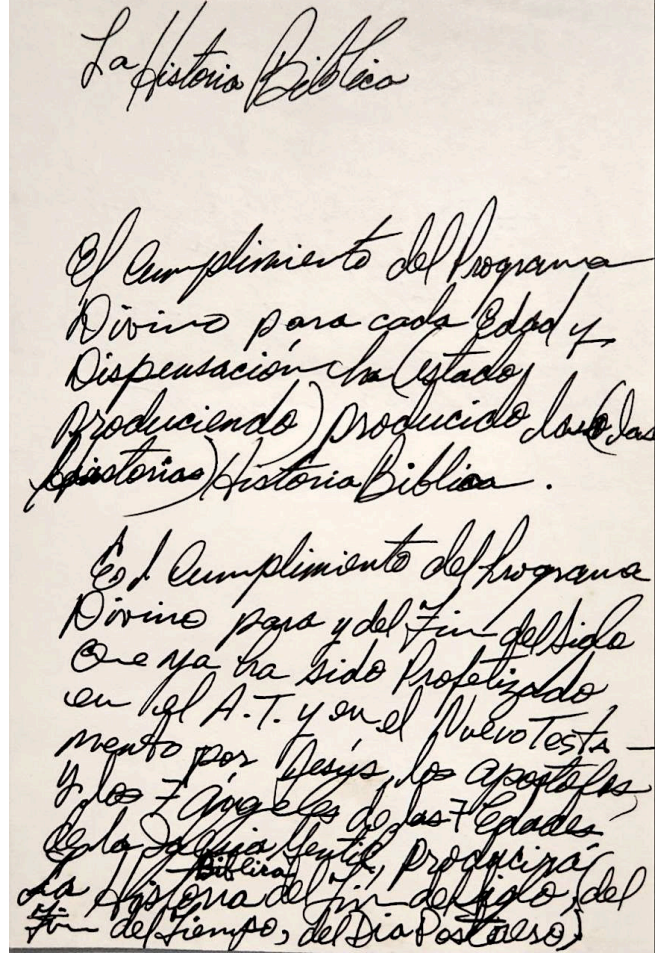 La Historia Bíblica
El Cumplimiento del Programa
Divino para cada Edad y
Dispensación ha (estado
produciendo) producido la o (las
historias) Historia Bíblica.
El Cumplimiento del Programa
Divino para y del Fin del Siglo
que ya ha sido Profetizado
en el A.T. y en el Nuevo Testa-
mento por Jesús, los apóstoles,
y los 7 ángeles de las 7 Edades
de la Iglesia Gentil, producirá
La Historia Bíblica del Fin del Siglo, (del
Fin del Tiempo, del Dia Postrero)